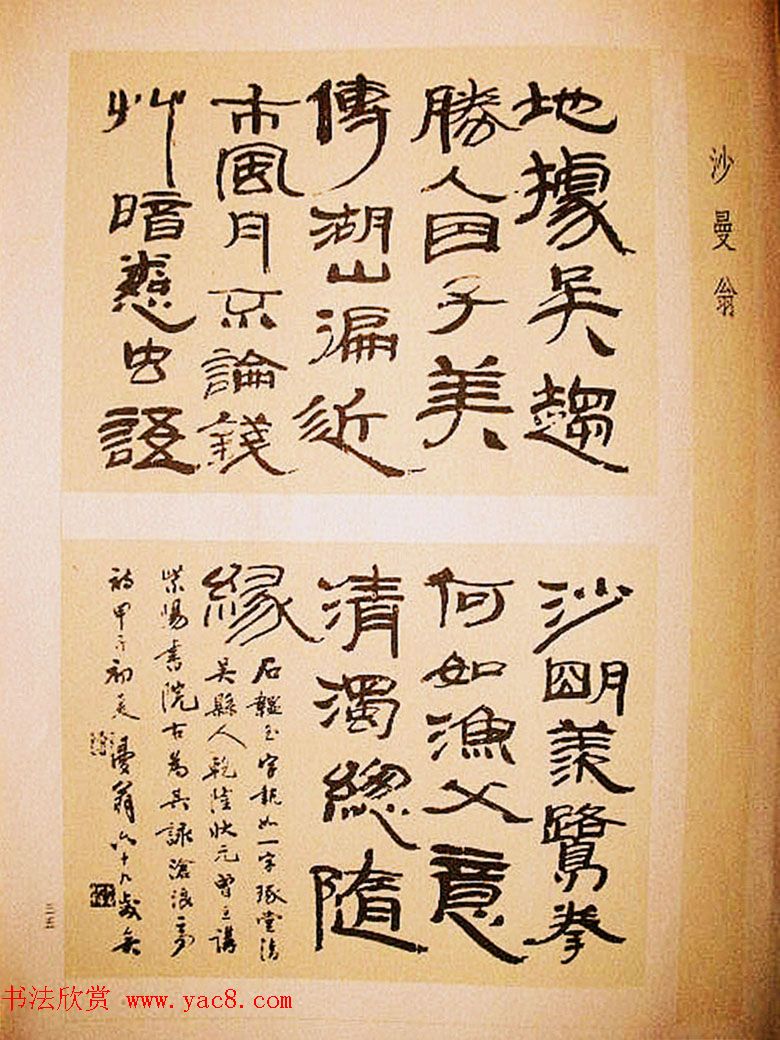 沙曼翁
地據吳趨
勝人因子美
傳湖山偏近
市風月不論錢
艸暗悲虫語
沙明羨鷺拳
何如漁父意
清濁總隨
緣
石韞玉字執如一字琢堂清
吳縣人乾隆狀元曾主講
紫陽書院古為其詠滄浪亭
詩甲子初夏曼翁六十九歲矣
三五
书法欣赏 www.yac8.com